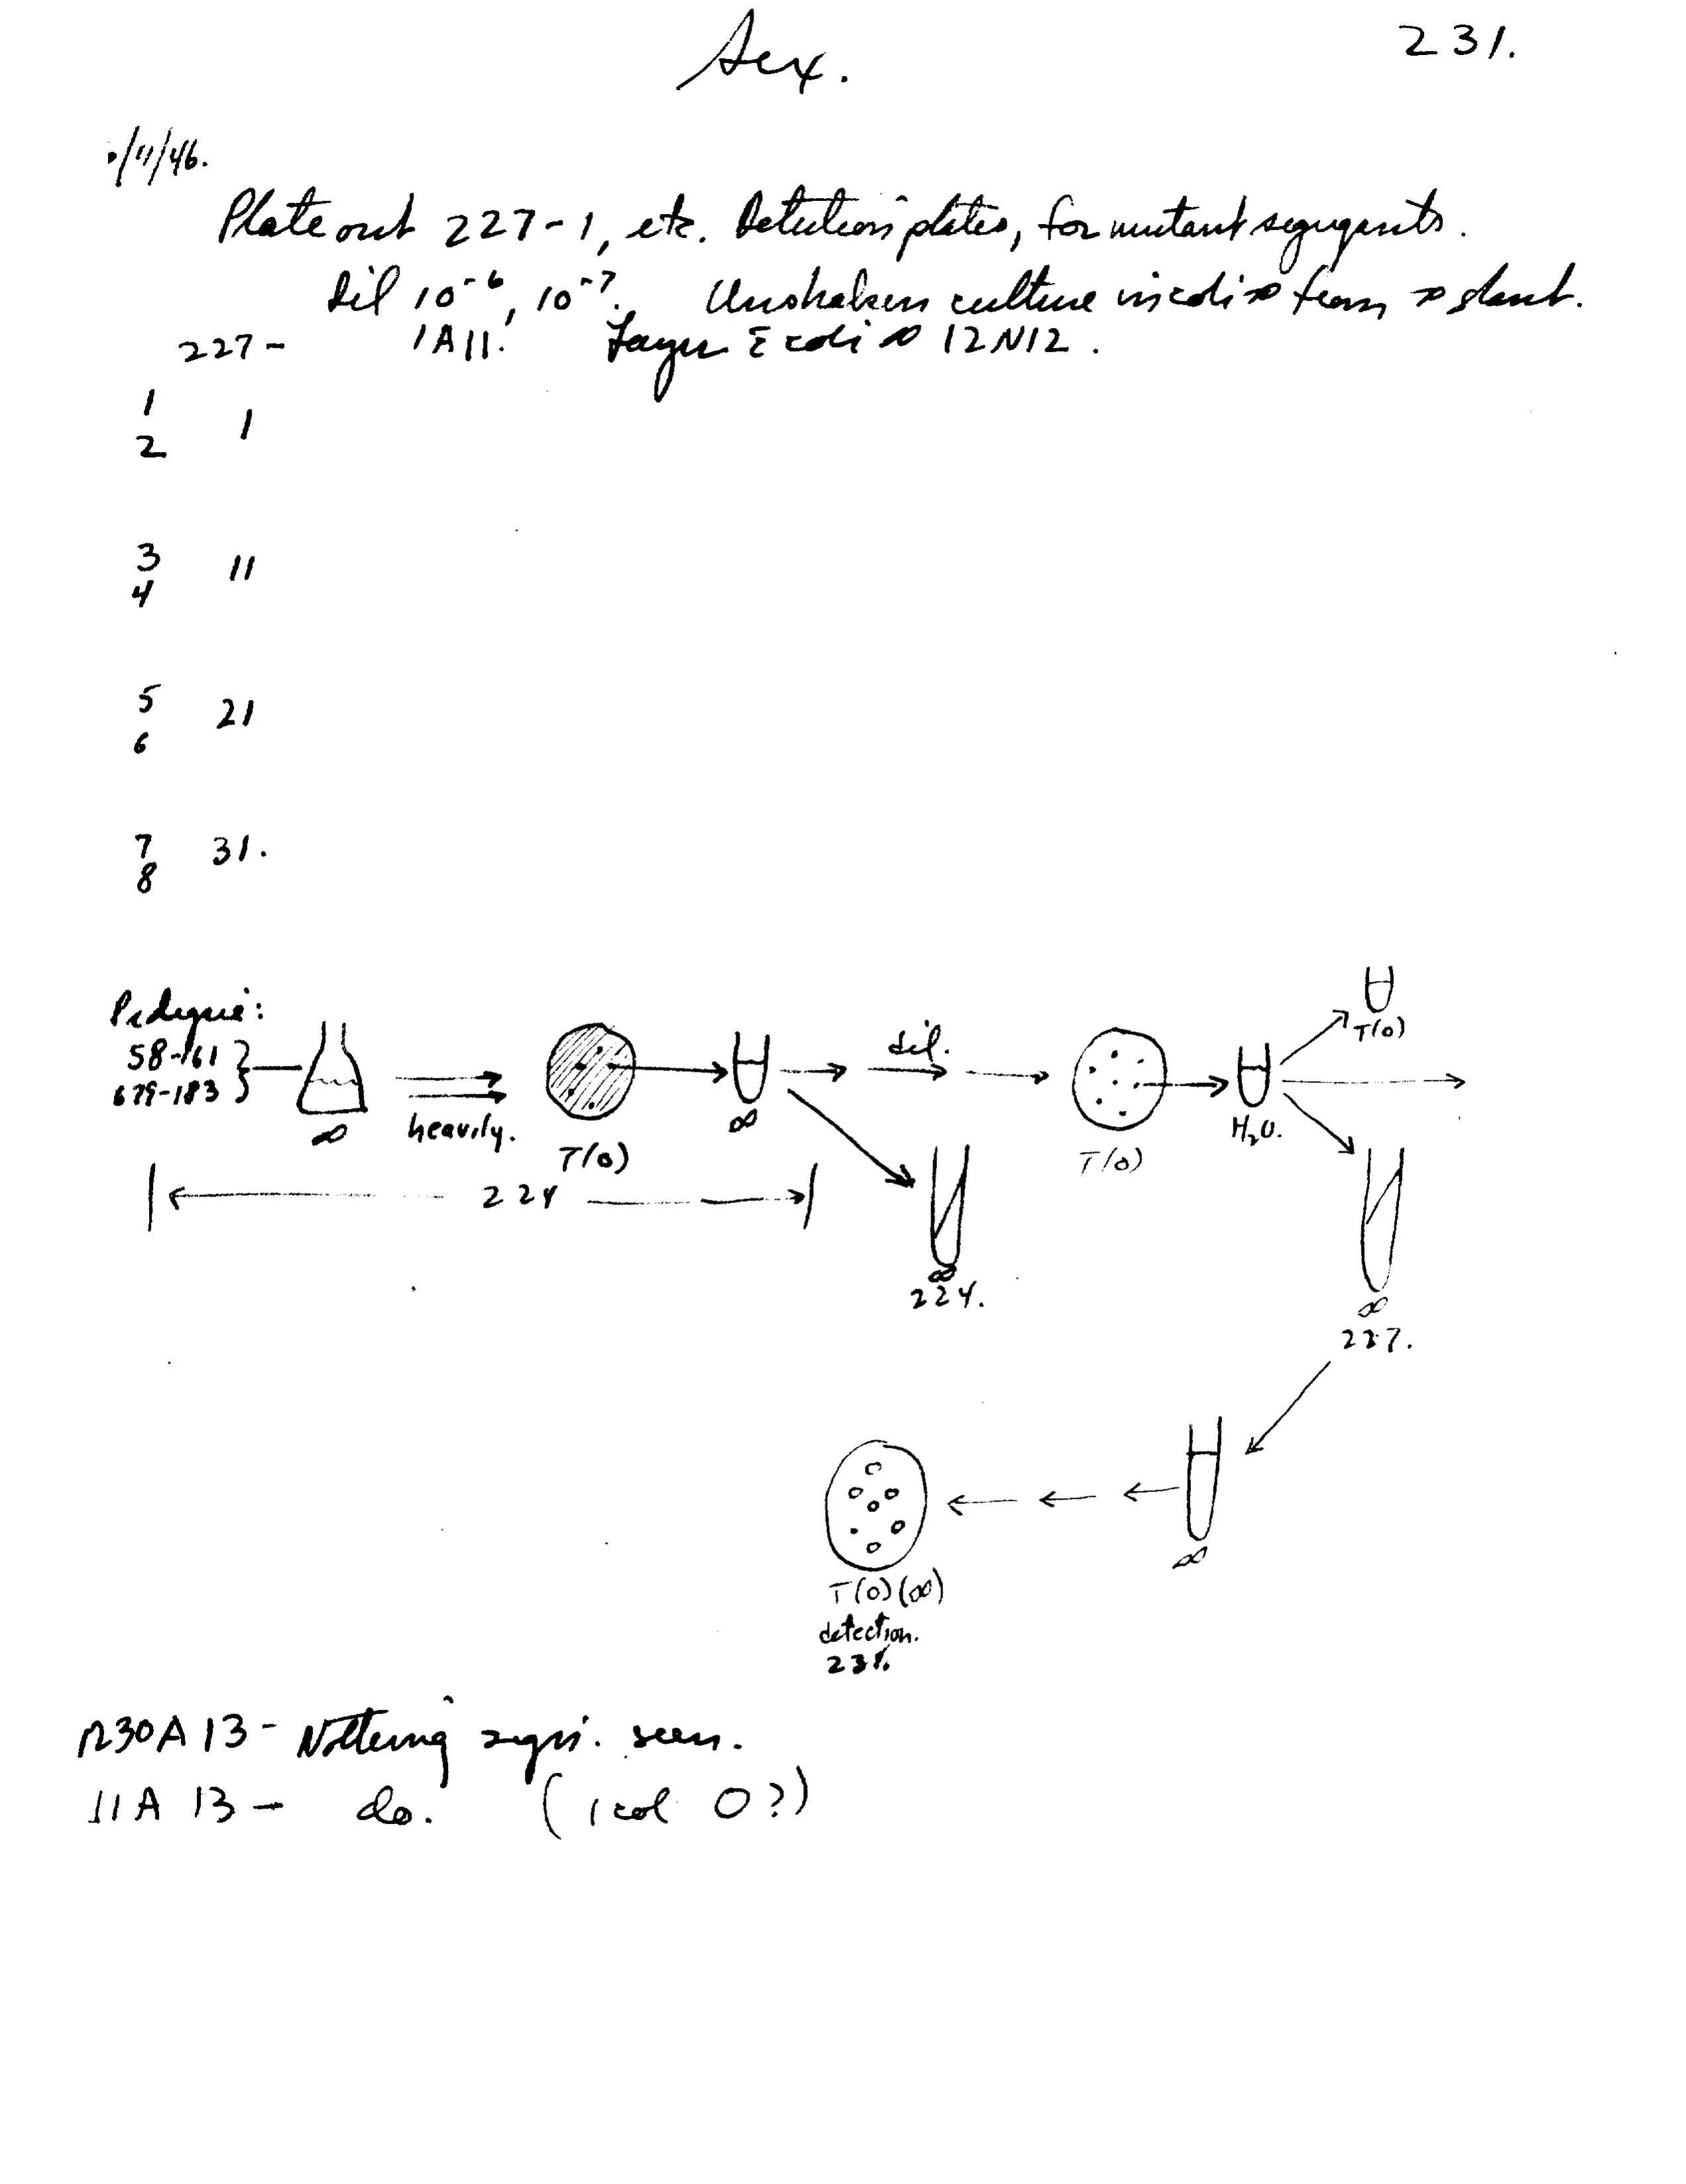 Sex.
231.
/11/46.
Plate out 227-1, etc. Detection plates, for mutant segregants.
Dil 10⁻⁶, 10⁻⁷. Unshaken culture in ∞ from ∞ slant.
227- 1A11. Layer ∞ 12N12.
1
2 1
3
4 11
5
6 21
7
8 31.
Pedigree:
58-161
679-183
∞
heavily.
T(0)
∞
dil.
T(0)
H₂O.
T(0)
224
∞
224.
∞
227.
∞
T(0)(∞)
detection.
231.
30A13- Nothing seen.
11A13- do. (1 col 0?)